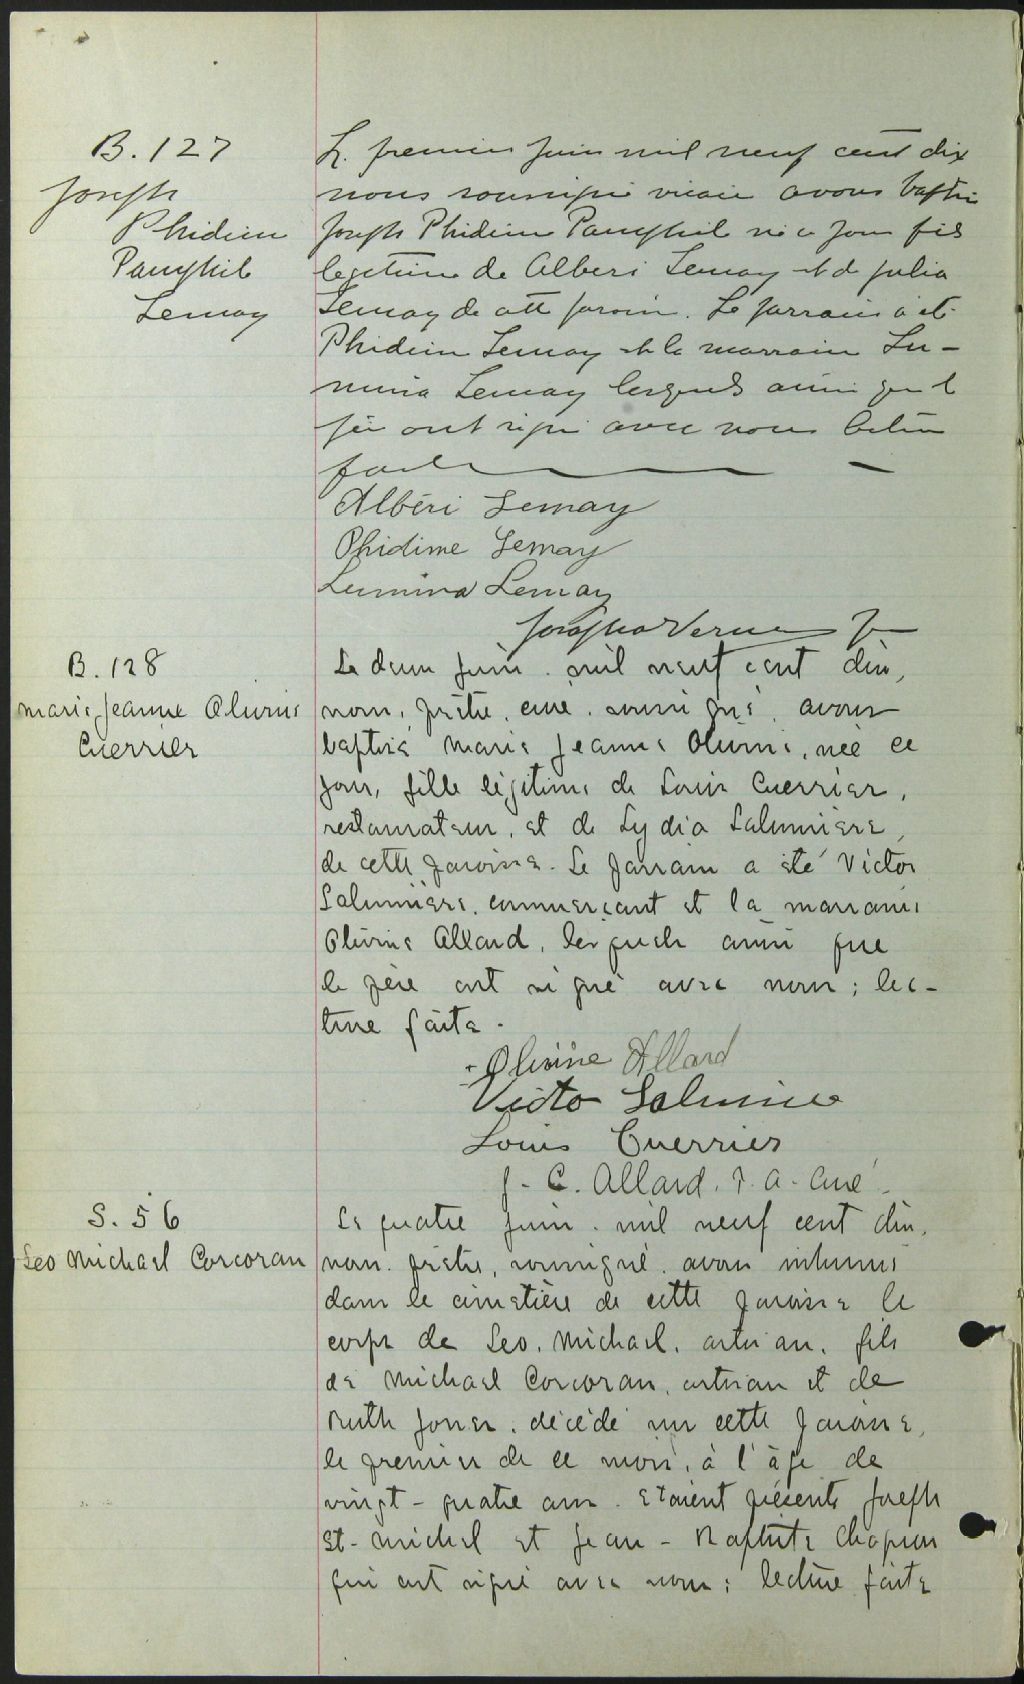 B. 127
Joseph
Phidime
Pamphil
Lemay
Le premier juin mil neuf cent dix
nous soussigné vicaire avons baptisé
Joseph Phidime Pamphil né ce jour fils
legitime de Alberi Lemay et de Julia
Lemay de cette paroisse. Le parrain a été
Phidime Lemay et la marraine Lu-
mina Lemay lesquels ainsi que le
père ont signé avec nous lecture
faite
Albéri Lemay
Phidime Lemay
Lumina Lemay
B. 128
Marie Jeanne Olivine
Cuerrier
Le deux juin. mil neuf cent dix,
nous, prêtre, curé, soussigné, avons
baptisé Marie Jeanne Olivine, née ce
jour, fille légitime de Louis Cuerrier,
restaurateur, et de Lydia Lalumière,
de cette paroisse. Le parrain a été Victor
Lalumière, commerçant et la marraine
Olivine Allard, lesquels ainsi que
le père ont signé avec nous; lec-
ture faite.
Olivine Allard
Victo Lalumière
Louis Cuerrier
J. C. Allard. P. A. Curé
S. 56
Leo Michael Corcoran
Le quatre juin. mil neuf cent dix,
nous prêtre, soussigné, avons inhumé
dans le cimetière de cette paroisse le
corps de Leo, Michael, artisan, fils
de Michael Corcoran, artisan et de
Ruth Jones, décédé en cette paroisse,
le premier de ce mois, à l'âge de
vingt-quatre ans. Etaient présents Joseph
St-Michel et Jean-Baptiste Chapman
qui ont signé avec nous; lecture faite